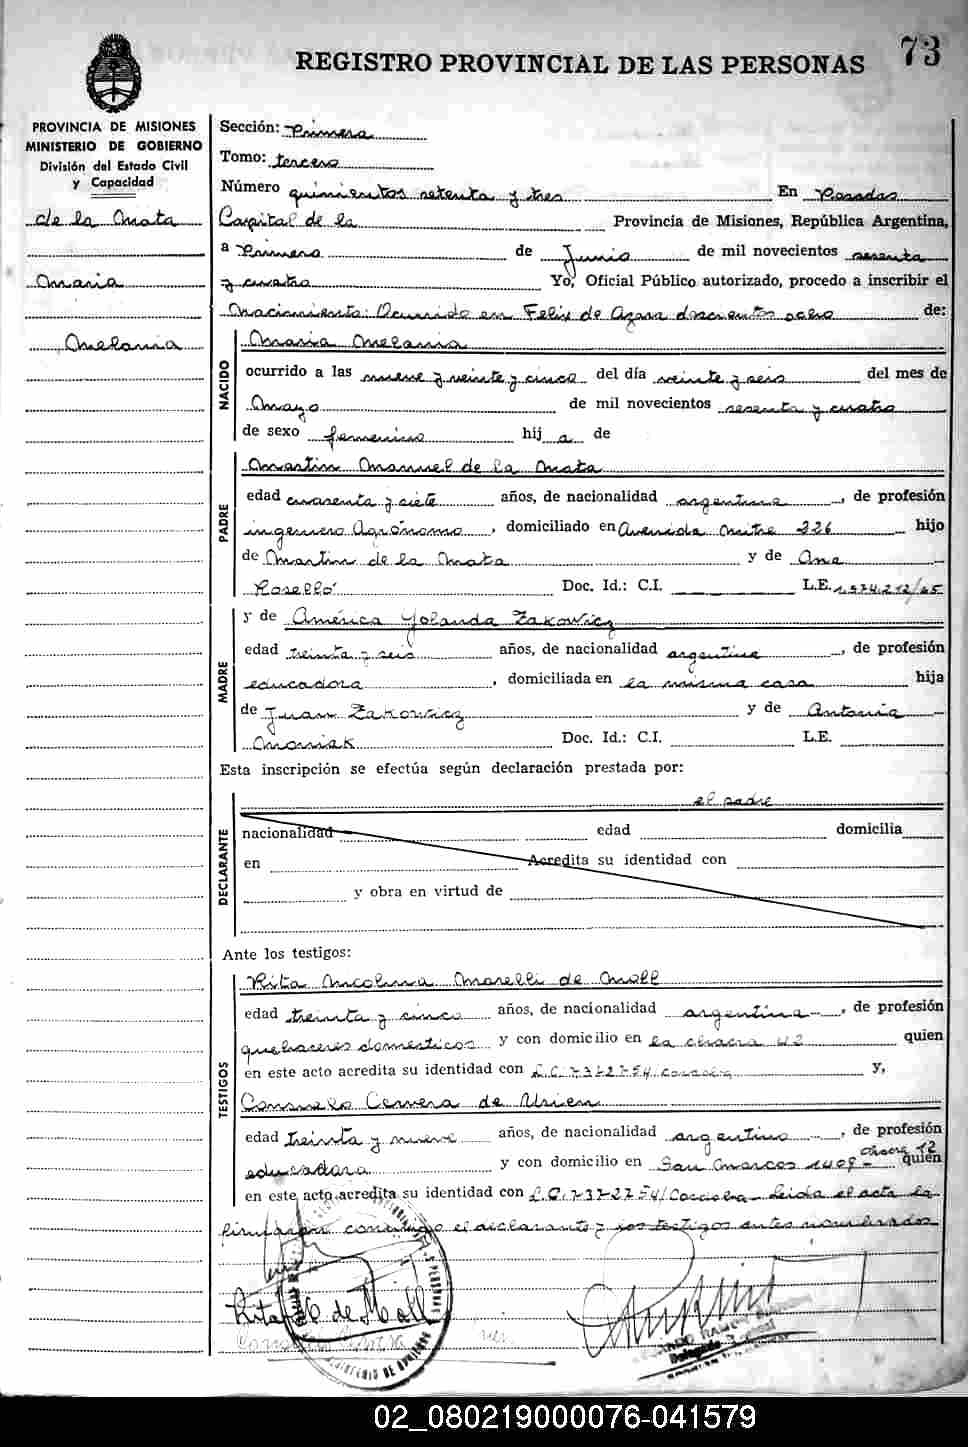 73
REGISTRO PROVINCIAL DE LAS PERSONAS
PROVINCIA DE MISIONES
MINISTERIO DE GOBIERNO
División del Estado Civil
y Capacidad
de la Mata
Maria
Melania
Sección: Primera
Tomo: tercero
Número quinientos setenta y tres En Posadas
Capital de la Provincia de Misiones, República Argentina,
a Primero de Junio de mil novecientos sesenta
y cuatro Yo, Oficial Público autorizado, procedo a inscribir el
Nacimiento: Ocurrido en Felix de Azara doscientos ocho de:
NACIDO
Maria Melania
ocurrido a las nueve y veinte y cinco del día veinte y seis del mes de
Mayo de mil novecientos sesenta y cuatro
de sexo femenino hij a de
PADRE
Martin Manuel de la Mata
edad cuarenta y siete años, de nacionalidad argentina, de profesión
ingeniero Agrónomo, domiciliado en Avenida Mitre 226 hijo
de Martin de la Mata y de Ana
Roselló Doc. Id.: C.I. L.E. 1.574.212/65
MADRE
y de América Yolanda Zakowicz
edad treinta y seis años, de nacionalidad argentina, de profesión
educadora, domiciliada en la misma casa hija
de Juan Zakowicz y de Antonia
Doc. Id.: C.I. L.E.
Esta inscripción se efectúa según declaración prestada por:
el padre
DECLARANTE
nacionalidad edad domicilia
en Acredita su identidad con
y obra en virtud de
Ante los testigos:
TESTIGOS
Rita Nicolina Morelli de Moll
edad treinta y cinco años, de nacionalidad argentina, de profesión
quehaceres domesticos y con domicilio en la chacra 42 quien
en este acto acredita su identidad con L.C. y,
Consuelo Cervera de Urien
edad treinta y nueve años, de nacionalidad argentina, de profesión
educadora y con domicilio en San Marcos 1409 - chacra 12 quien
en este acto acredita su identidad con L.C. 7372754/Cordoba - Leida el acta la
firmaron conmigo el declarante y los testigos antes nombrados
Rita M de Moll
02_080219000076-041579